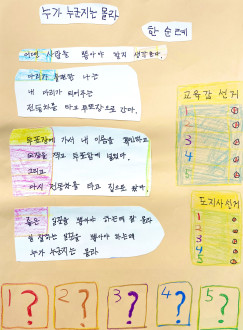 누가 누군지는 몰라
한순례
어떤 사람을 뽑아야 할지 생각한다.
다리가 불편한 나는
내 다리가 되어주는
전동차를 타고 투표장으로 간다.
투표장에 가서 내 이름을 확인하고
도장을 찍고 투표함에 넣었다.
그리고
다시 전동차를 타고 집으로 왔다.
좋은 일꾼을 뽑아야 하는데 잘 몰라
일 잘하는 일꾼을 뽑아야 하는데
누가 누군지는 몰라
교육감 선거
1
2
3
4
5
도지사 선거
1
2
3
4
5
1 ?
2 ?
3 ?
4 ?
5 ?